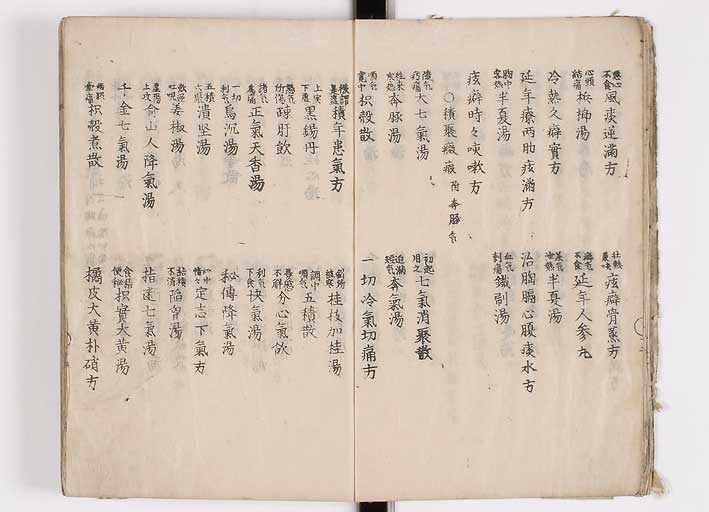 不食 風痰逆滿方 痃癖骨蒸方
心頭結痛 檳榔湯 癖氣不食 延年人參丸
冷熱久癖實方 半夏湯
延年療兩肋痃滿方 治胸膈心腹痰水方
胸中客熱 半夏湯 血氣刺痛 鐵刷湯
痃癖時々唊嗽方
○積聚癥瘕 附奔豚氣
積氣疞痛 大七氣湯 初起用之 七氣消聚散
往來寒熱 奔豚湯 逆滿短氣 奔氣湯
順氣寛中 枳殻散 一切冷氣切痛方
積年患氣方 桂枝加桂湯
上実下虚 黒錫丹 調中順氣 五積散
怒氣所傷 踈肝飲 憂愁不解 分心氣飲
諸氣腹痛 正氣天香湯 利氣下食 快氣湯
一切利氣 烏沉湯 秘傳降氣湯
五積六聚 潰堅湯 心中 定志下氣方
姜椒湯 結積不消 陷胷湯
虚陽上攻 俞山人降氣湯 指迷七氣湯
千金七氣湯 食積便秘 枳實大黄湯
両脇牽痛 枳殻煮散 橘皮大黄朴硝方